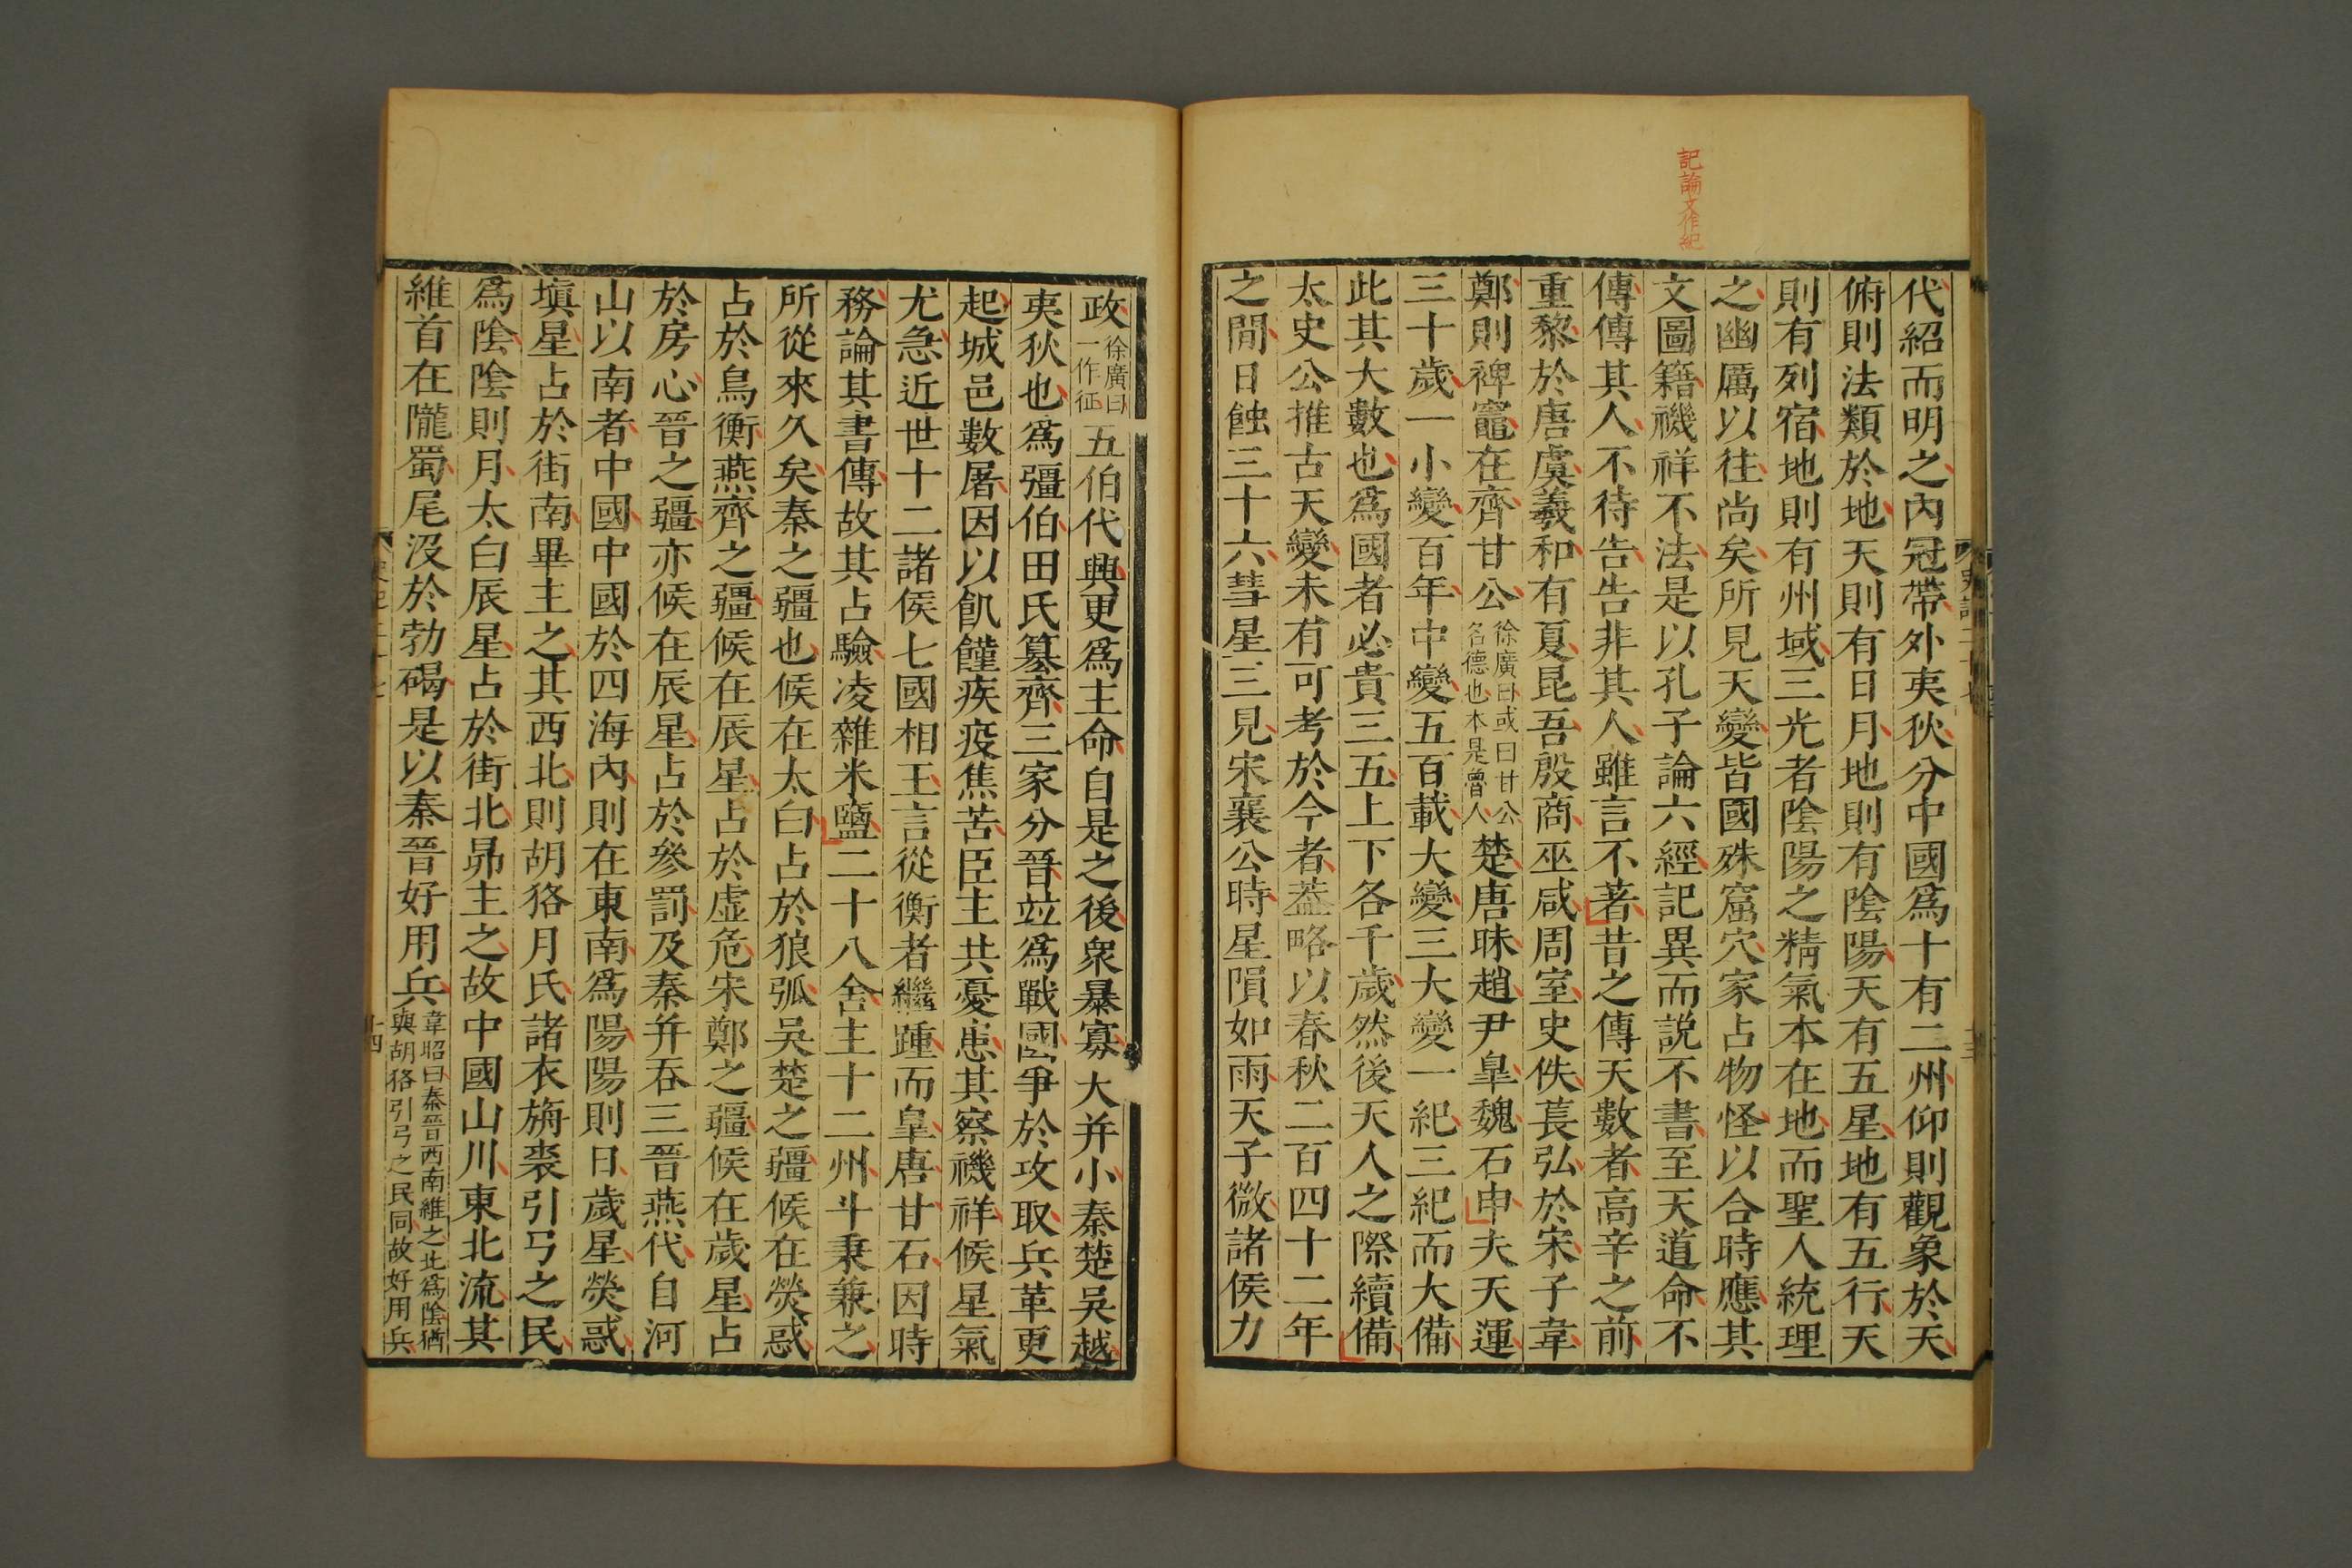 記論文作紀
代紹而明之內冠帶外夷狄分中國爲十有二州仰則觀象於天
俯則法類於地天則有日月地則有陰陽天有五星地有五行天
則有列宿地則有州域三光者陰陽之精氣本在地而聖人統理
之幽厲以往尚矣所見天變皆國殊窟穴家占物怪以合時應其
文圖籍禨祥不法是以孔子論六經記異而説不書至天道命不
傳傳其人不待告告非其人雖言不著昔之傳天數者高辛之前
重黎於唐虞羲和有夏昆吾殷商巫咸周室史佚萇弘於宋子韋
鄭則裨竈在齊甘公
徐廣曰或曰甘公
名德也本是魯人
楚唐昧趙尹臯魏石申夫天運
三十歲一小變百年中變五百載大變三大變一紀三紀而大備
此其大數也爲國者必貴三五上下各千歲然後天人之際續備
太史公推古天變未有可考於今者葢略以春秋二百四十二年
之閒日蝕三十六彗星三見宋襄公時星隕如雨天子微諸侯力
政
徐廣曰
一作征
五伯代興更爲主命自是之後衆暴寡大并小秦楚吳越
夷狄也爲彊伯田氏簒齊三家分晉竝爲戰國爭於攻取兵革更
起城邑數屠因以飢饉疾疫焦苦臣主共憂患其察禨祥候星氣
尤急近世十二諸侯七國相王言從衡者繼踵而臯唐甘石因時
務論其書傳故其占驗凌雜米鹽二十八舍主十二州斗秉兼之
所從來久矣秦之疆也候在太白占於狼弧吳楚之疆候在熒惑
占於鳥衡燕齊之疆候在辰星占於虛危宋鄭之疆候在歲星占
於房心晉之疆亦候在辰星占於參罰及秦并吞三晉燕代自河
山以南者中國中國於四海內則在東南爲陽陽則日歲星熒惑
塡星占於街南畢主之其西北則胡狢月氏諸衣旃裘引弓之民
爲陰陰則月太白辰星占於街北昴主之故中國山川東北流其
維首在隴蜀尾沒於勃碣是以秦晉好用兵
韋昭曰秦晉西南維之北爲陰猶
與胡狢引弓之民同故好用兵